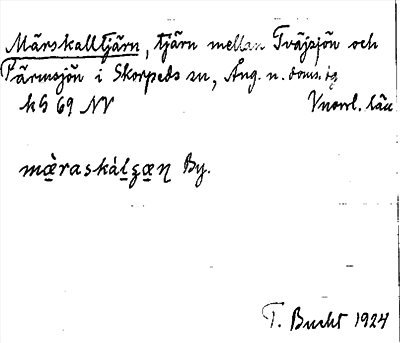 Märskalltjärn, tjärn mellan Tväjsjön och
Tärnsjön i Skorpeds sn, Ång. n. doms.
kG 69 NV Vnorrl. län
mæ̀raskálʂæn By.
T. Bucht 1924